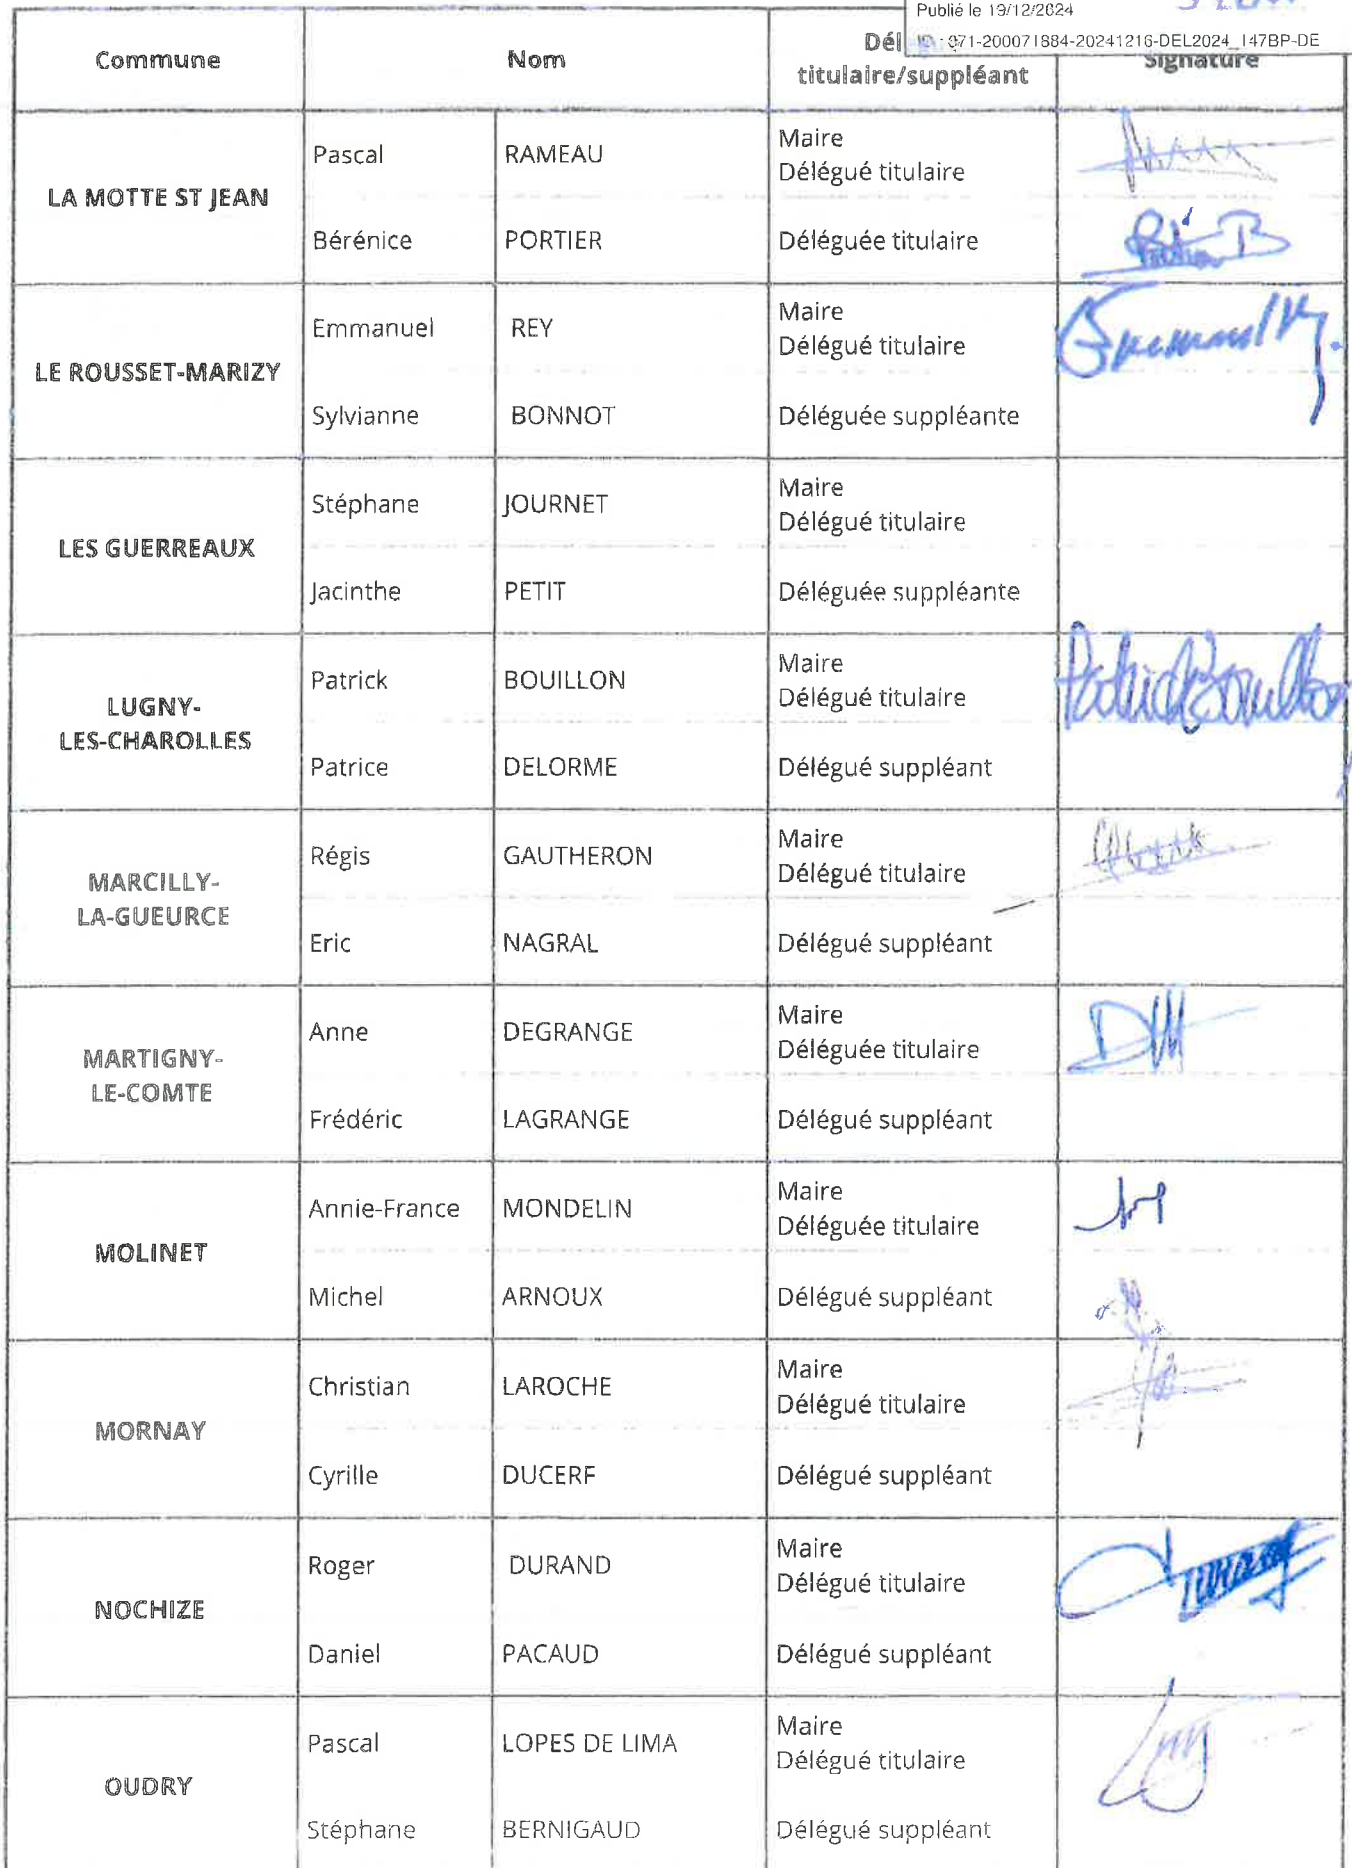 Publié le 19/12/2024
ID : 071-200071884-20241216-DEL2024_147BP-DE
Commune Nom Dél
titulaire/suppléant Signature
LA MOTTE ST JEAN
Pascal RAMEAU Maire
Délégué titulaire
Bérénice PORTIER Déléguée titulaire
LE ROUSSET-MARIZY
Emmanuel REY Maire
Délégué titulaire
Sylvianne BONNOT Déléguée suppléante
LES GUERREAUX
Stéphane JOURNET Maire
Délégué titulaire
Jacinthe PETIT Déléguée suppléante
LUGNY-
LES-CHAROLLES
Patrick BOUILLON Maire
Délégué titulaire
Patrick Bouillon
Patrice DELORME Délégué suppléant
MARCILLY-
LA-GUEURCE
Régis GAUTHERON Maire
Délégué titulaire
Eric NAGRAL Délégué suppléant
MARTIGNY-
LE-COMTE
Anne DEGRANGE Maire
Déléguée titulaire
Frédéric LAGRANGE Délégué suppléant
MOLINET
Annie-France MONDELIN Maire
Déléguée titulaire
Michel ARNOUX Délégué suppléant
MORNAY
Christian LAROCHE Maire
Délégué titulaire
Cyrille DUCERF Délégué suppléant
NOCHIZE
Roger DURAND Maire
Délégué titulaire
Daniel PACAUD Délégué suppléant
OUDRY
Pascal LOPES DE LIMA Maire
Délégué titulaire
Stéphane BERNIGAUD Délégué suppléant